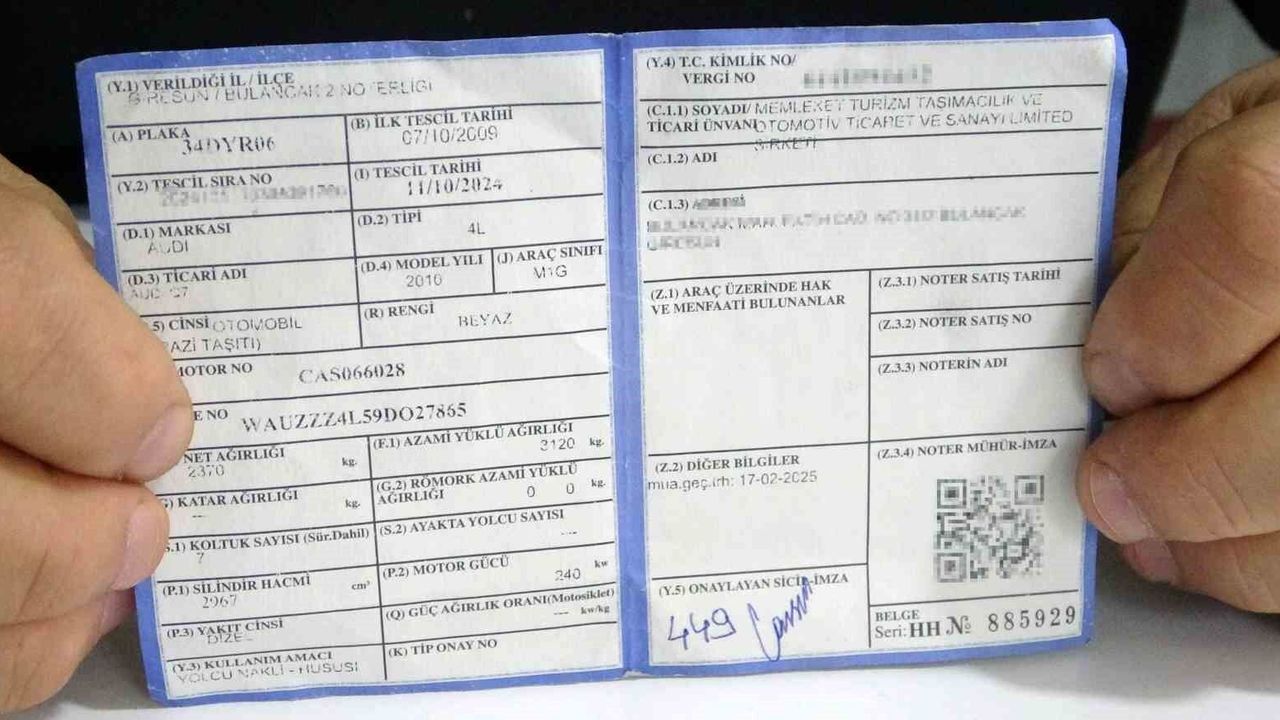 (Y.1) VERİLDİĞİ İL / İLÇE
GİRESUN / BULANCAK 2 NOTERLİĞİ
(A) PLAKA
34DYR06
(B) İLK TESCİL TARİHİ
07/10/2009
(Y.2) TESCİL SIRA NO
(I) TESCİL TARİHİ
11/10/2024
(D.1) MARKASI
AUDİ
(D.2) TİPİ
4L
(D.3) TİCARİ ADI
AUDİ Q7
(D.4) MODEL YILI
2010
(J) ARAÇ SINIFI
M1G
.5) CİNSİ OTOMOBİL
AZİ TAŞITI)
(R) RENGİ
BEYAZ
MOTOR NO
CAS066028
E NO
WAUZZZ4L59DO27865
NET AĞIRLIĞI
2370 kg.
(F.1) AZAMİ YÜKLÜ AĞIRLIĞI
3120 kg.
) KATAR AĞIRLIĞI
--- kg.
(G.2) RÖMORK AZAMİ YÜKLÜ
AĞIRLIĞI 0 0 kg.
.1) KOLTUK SAYISI (Sür.Dahil)
7
(S.2) AYAKTA YOLCU SAYISI
---
(P.1) SİLİNDİR HACMİ cm³
2967
(P.2) MOTOR GÜCÜ
240 kw
(P.3) YAKIT CİNSİ
DİZEL
(Q) GÜÇ AĞIRLIK ORANI(Motosiklet)
--- kw/kg
(Y.3) KULLANIM AMACI
YOLCU NAKLİ - HUSUSİ
(K) TİP ONAY NO
(Y.4) T.C. KİMLİK NO/
VERGİ NO
(C.1.1) SOYADI/ MEMLEKET TURİZM TAŞIMACILIK VE
TİCARİ ÜNVANI OTOMOTİV TİCARET VE SANAYİ LİMİTED
ŞİRKETİ
(C.1.2) ADI
(C.1.3) ADRESİ
(Z.1) ARAÇ ÜZERİNDE HAK
VE MENFAATİ BULUNANLAR
(Z.3.1) NOTER SATIŞ TARİHİ
(Z.3.2) NOTER SATIŞ NO
(Z.3.3) NOTERİN ADI
(Z.2) DİĞER BİLGİLER
mua.geç.trh: 17-02-2025
(Z.3.4) NOTER MÜHÜR-İMZA
(Y.5) ONAYLAYAN SİCİL-İMZA
449
BELGE
Seri: HH № 885929